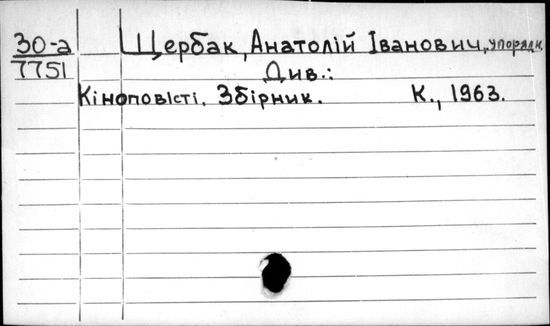 30-а Щербак, Анатолій Іванович, упорядн.
7751 Див.:
Кіноповісті. Збірник. К., 1963.